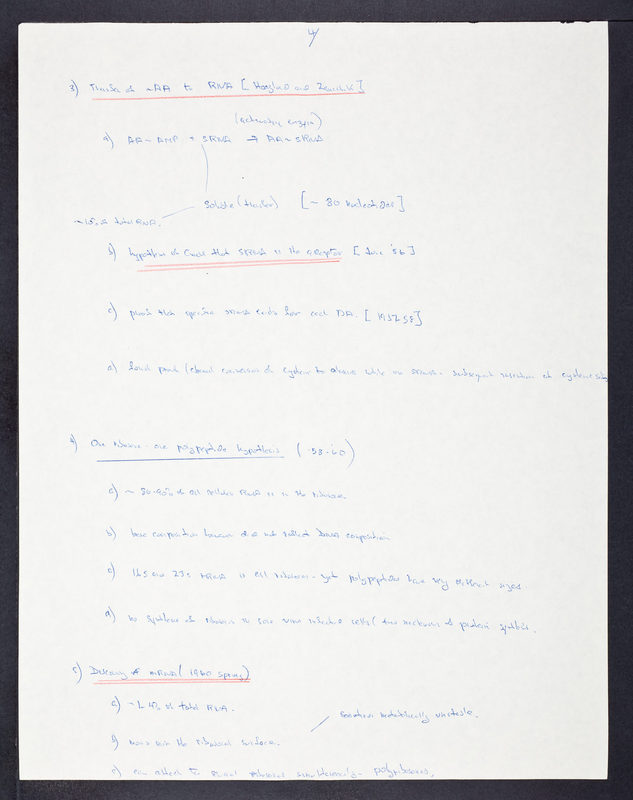 4/
3) Transfer of ~AA to RNA [Hoagland and Zamecnik]
(activating enzyme)
a) AA~AMP + SRNA → AA~SRNA
Soluble (transfer) [~ 80 nucleotides]
~15% of total RNA.
b) hypothesis of Crick that SRNA is the acceptor ['56]
c) proof that specific SRNA exists for each AA. [1957-58]
d) final proof (chemical conversion of cysteine to alanine while on SRNA - subsequent insertion at cysteine site
4) One ribosome - one polypeptide hypothesis (58-60)
a) ~ 80-90% of all cellular RNA is in the ribosome
b) base composition however does not reflect DNA composition
c) 16s and 23s rRNA in all ribosomes - yet polypeptides have very different sizes.
d) no synthesis of ribosomes in some virus infected cells (two mechanisms of protein synthesis.
5) Discovery of mRNA (1960 Spring)
a) ~1-4% of total RNA. sometimes metabolically unstable.
b) moves over the ribosomal surface.
c) can attach to several ribosomes simultaneously - polyribosomes.